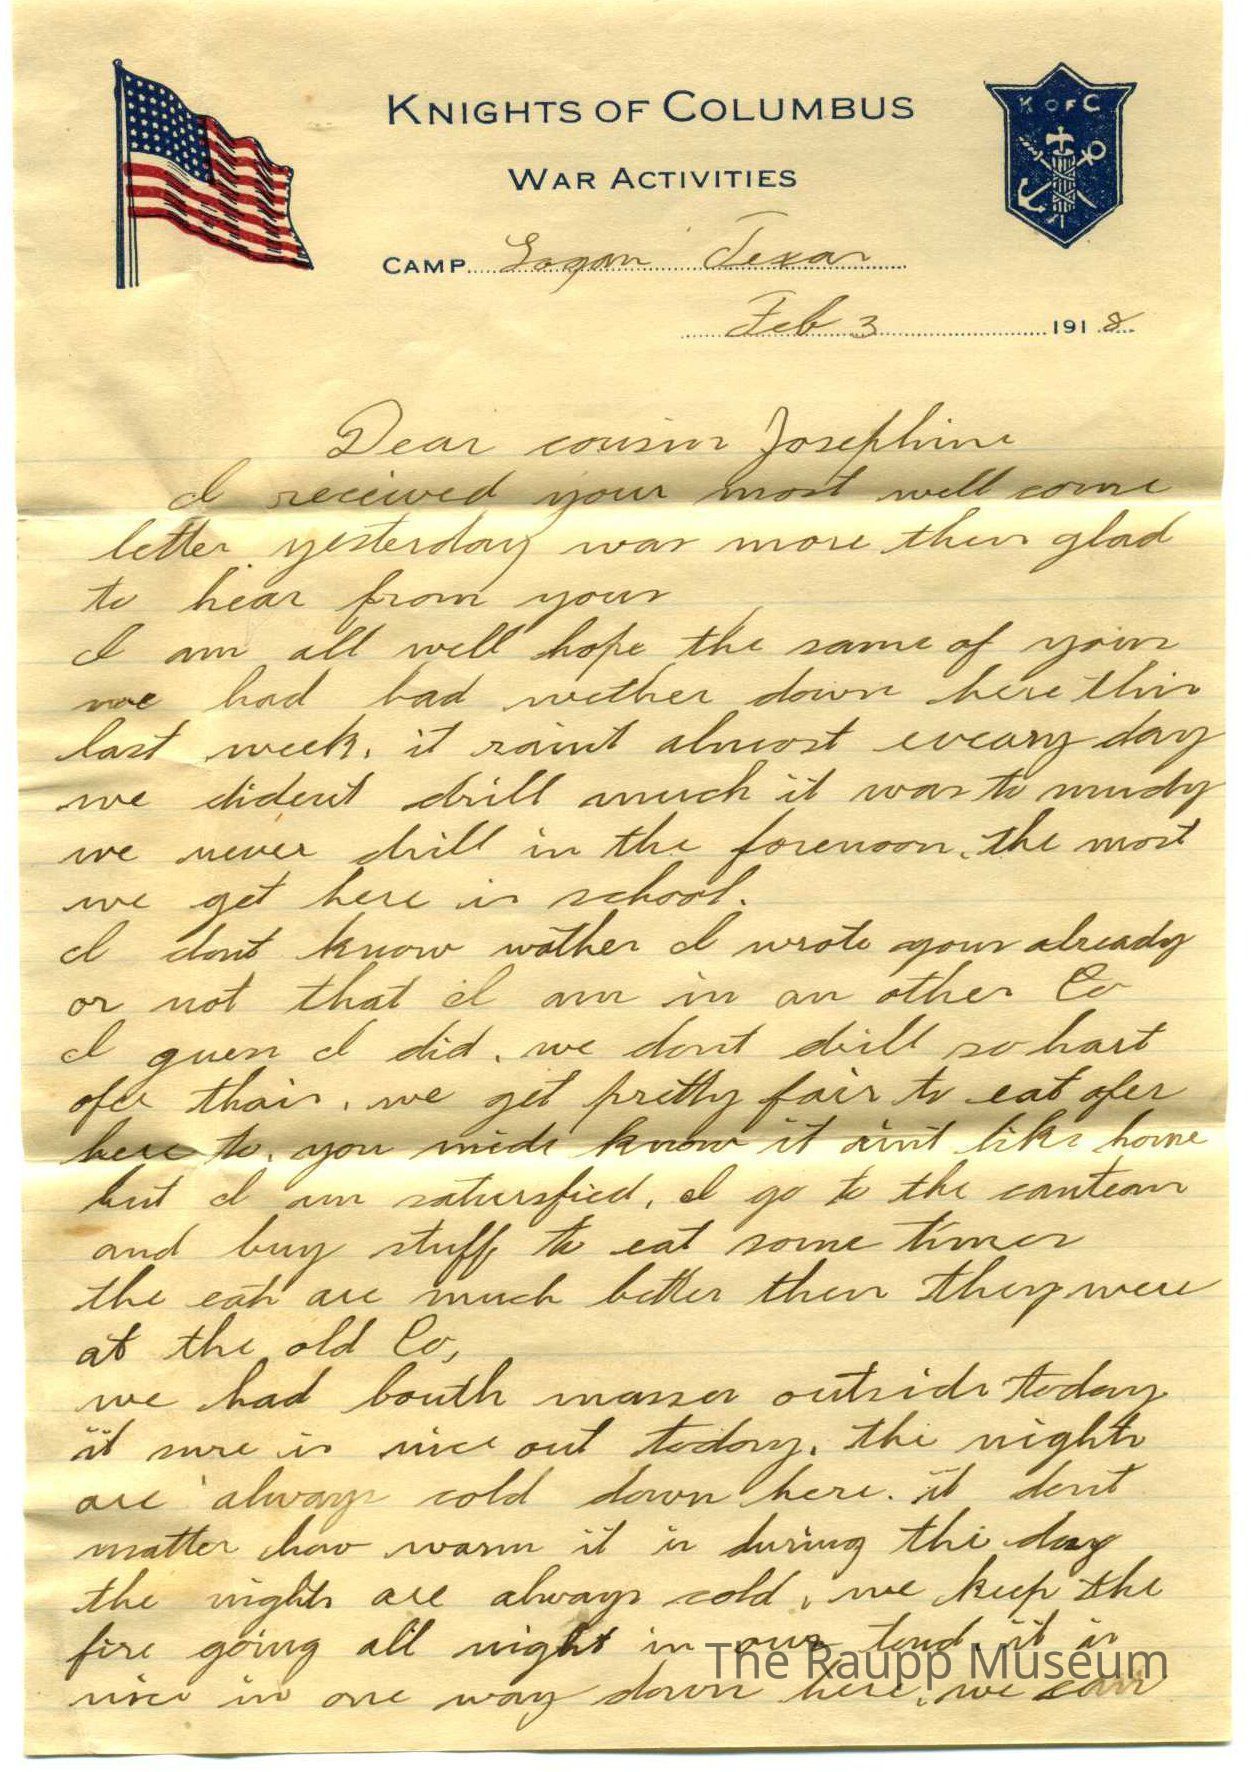 KNIGHTS OF COLUMBUS
K OF C
WAR ACTIVITIES
CAMP Logan Texas
Feb 3 1918
Dear cousin Josephine
I received your most well come
letter yesterday was more then glad
to hear from your
I am all well hope the same of your
we had bad wether down here this
last week. it raint almost eveary day
we dident drill much it was to mudy
we never drill in the forenoon. the most
we get here is school.
I dont know wather I wrote your already
or not that I am in an other Co
I guess I did. we dont drill so hart
ofer thair. we get pretty fair to eat ofer
here to. you know it aint like home
but I am satursfied. I go to the canteen
and buy stuff to eat some times
the eats are much better then they were
at the old Co,
we had bouth masses outside today
it sure is nice out today. the nights
are always cold down here. it dont
matter how warm it is during the day
the nights are always cold. we keep the
fire going all night in our tend. it is
nice in one way down here. we can
The Raupp Museum